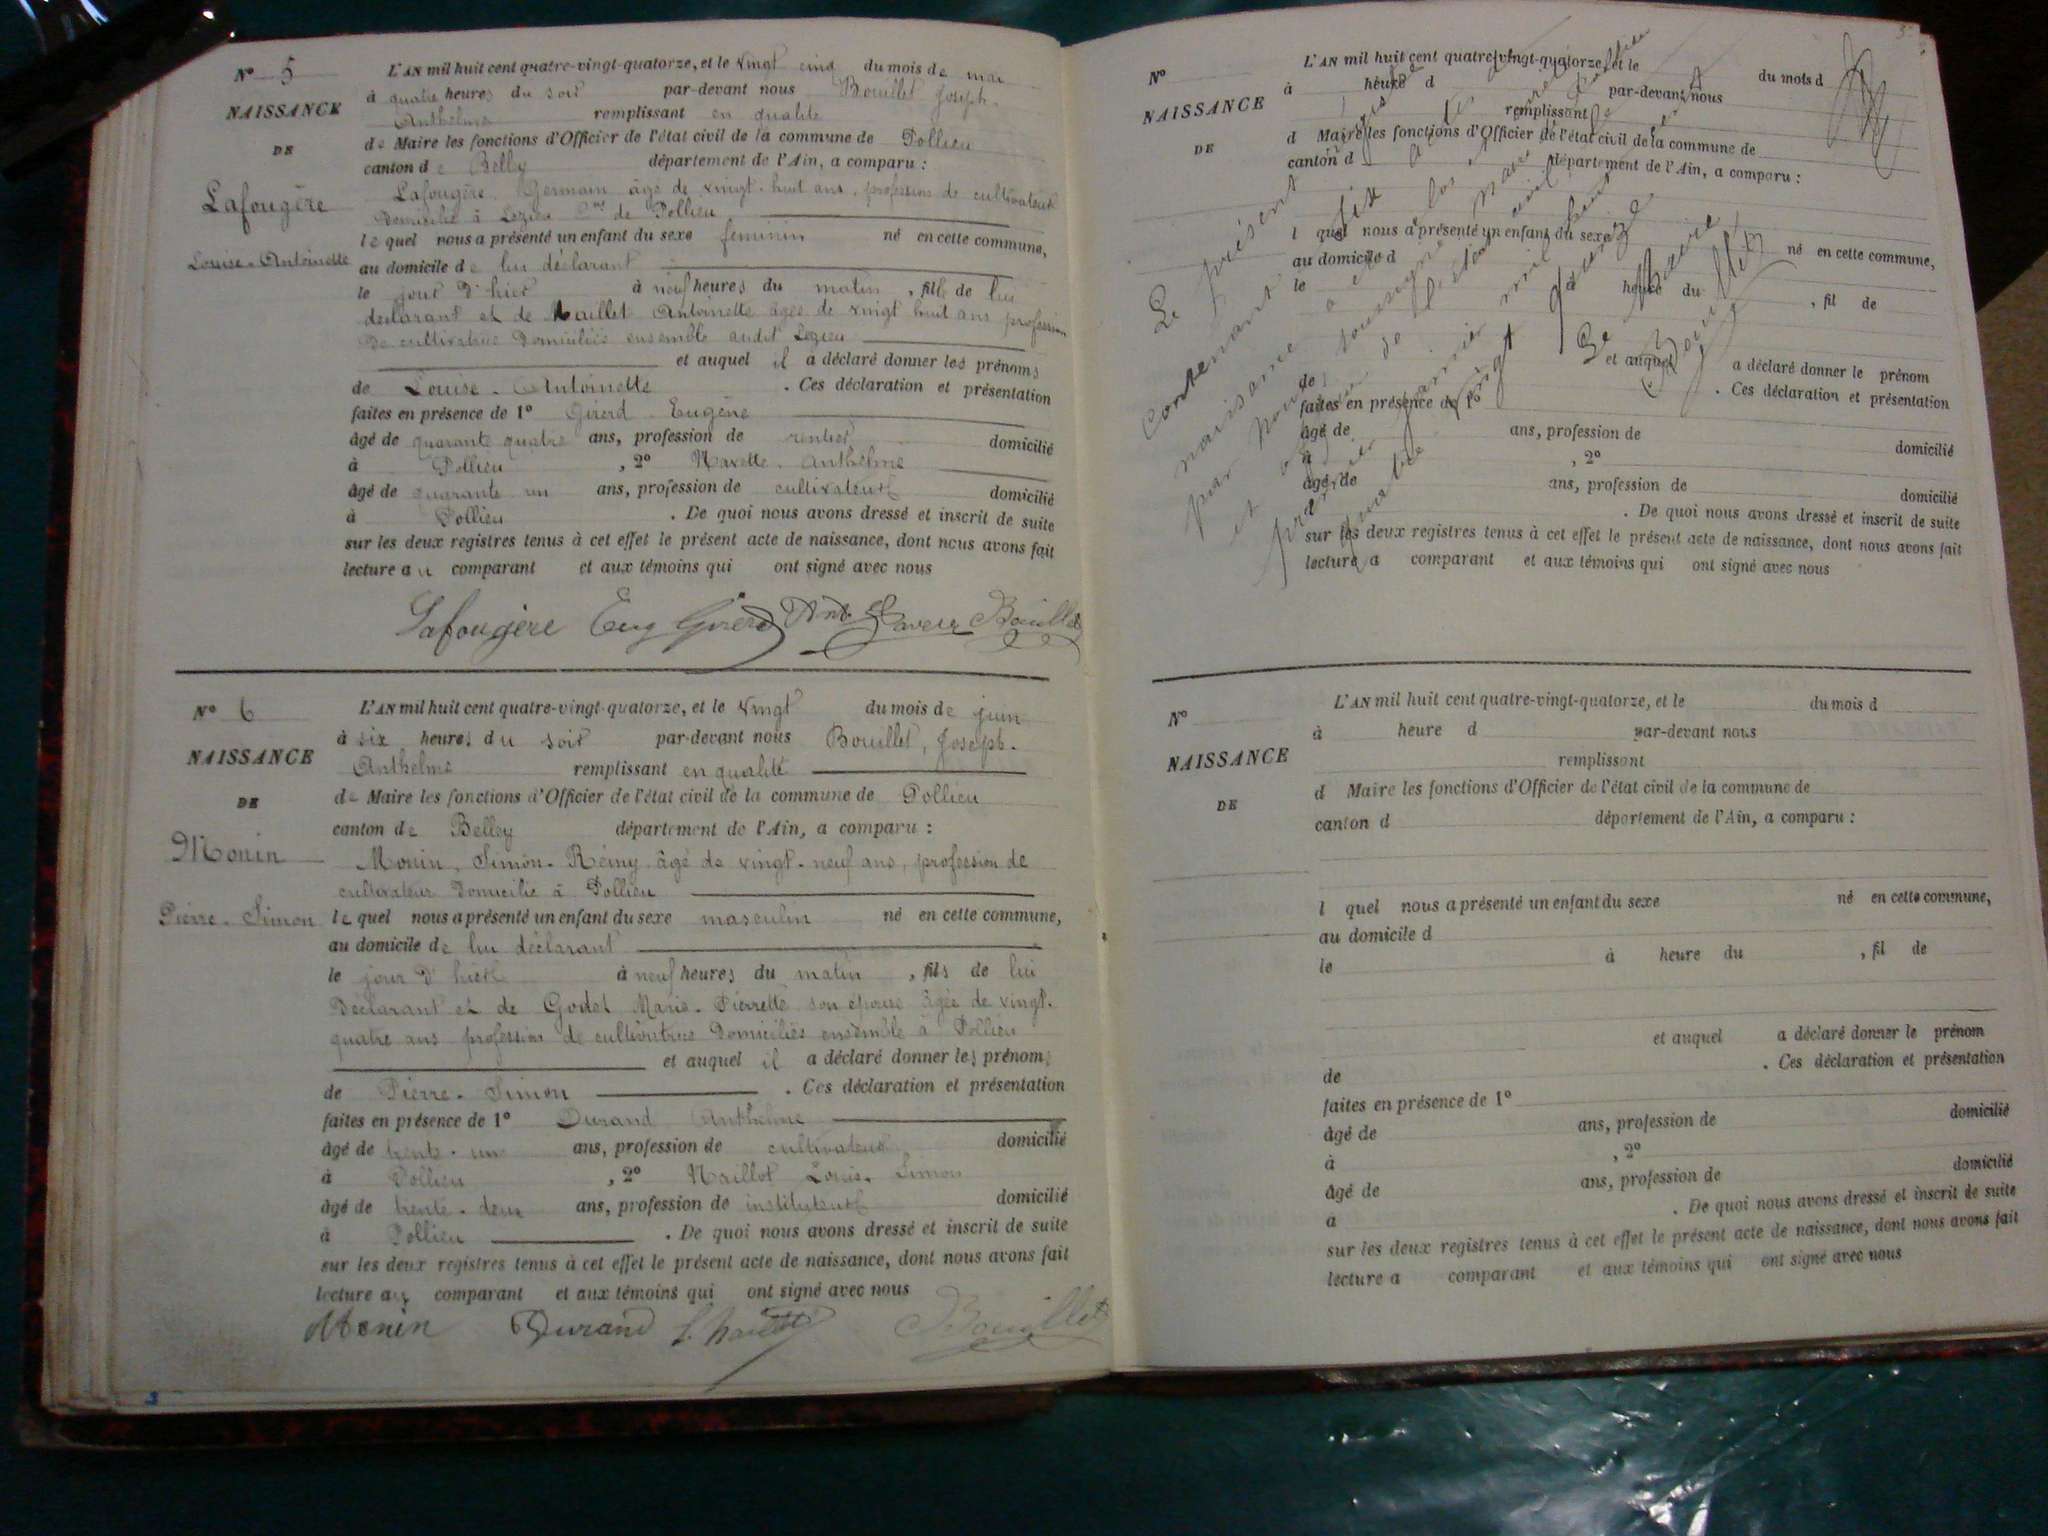 N° 5
NAISSANCE
DE
Lafougère
Louise-Antoinette
L'AN mil huit cent quatre-vingt-quatorze, et le vingt cinq du mois de mai
à quatre heures du soir par-devant nous Bouillet Joseph-
Anthelme remplissant en qualité
de Maire les fonctions d'Officier de l'état civil de la commune de Pollieu
canton de Belley département de l'Ain, a comparu :
Lafougère Germain âgé de vingt-huit ans, profession de cultivateur
domicilié à Lezieu Cne de Pollieu
lequel nous a présenté un enfant du sexe féminin né en cette commune,
au domicile de lui déclarant
le jour d'hier à neuf heures du matin, fille de lui
déclarant et de Maillet Antoinette âgée de vingt huit ans profession
de cultivatrice domiciliés ensemble audit Lezieu
et auquel il a déclaré donner les prénoms
de Louise-Antoinette. Ces déclaration et présentation
faites en présence de 1° Girerd Eugène
âgé de quarante quatre ans, profession de rentier domicilié
à Pollieu, 2° Anthelme
âgé de quarante un ans, profession de cultivateur domicilié
à Pollieu. De quoi nous avons dressé et inscrit de suite
sur les deux registres tenus à cet effet le présent acte de naissance, dont nous avons fait
lecture au comparant et aux témoins qui ont signé avec nous
Lafougère Eug Girerd Bouillet
N° 6
NAISSANCE
DE
Monin
Pierre-Simon
L'AN mil huit cent quatre-vingt-quatorze, et le vingt du mois de juin
à six heures du soir par-devant nous Bouillet, Joseph-
Anthelme remplissant en qualité
de Maire les fonctions d'Officier de l'état civil de la commune de Pollieu
canton de Belley département de l'Ain, a comparu :
Monin, Simon-Rémy âgé de vingt-neuf ans, profession de
cultivateur domicilié à Pollieu
lequel nous a présenté un enfant du sexe masculin né en cette commune,
au domicile de lui déclarant
le jour d'hier à neuf heures du matin, fils de lui
déclarant et de Godet Marie-Pierrette son épouse âgée de vingt-
quatre ans profession de cultivatrice domiciliés ensemble à Pollieu
et auquel il a déclaré donner les prénoms
de Pierre-Simon. Ces déclaration et présentation
faites en présence de 1° Durand Anthelme
âgé de trente-un ans, profession de cultivateur domicilié
à Pollieu, 2° Louis-Simon
âgé de trente-deux ans, profession de instituteur domicilié
à Pollieu. De quoi nous avons dressé et inscrit de suite
sur les deux registres tenus à cet effet le présent acte de naissance, dont nous avons fait
lecture au comparant et aux témoins qui ont signé avec nous
Monin Durand Bouillet
3
5
N°
NAISSANCE
DE
L'AN mil huit cent quatre-vingt-quatorze, et le du mois d
à heure d par-devant nous
remplissant
d Maire les fonctions d'Officier de l'état civil de la commune de
canton d département de l'Ain, a comparu :
l quel nous a présenté un enfant du sexe né en cette commune,
au domicile d
le à heure du , fil de
et auquel a déclaré donner le prénom
de . Ces déclaration et présentation
faites en présence de 1°
âgé de ans, profession de domicilié
à , 2°
âgé de ans, profession de domicilié
à . De quoi nous avons dressé et inscrit de suite
sur les deux registres tenus à cet effet le présent acte de naissance, dont nous avons fait
lecture a comparant et aux témoins qui ont signé avec nous
Le présent
contenant six
naissance a
par nous soussigné Maire
et officier de l'état civil
premier janvier mil huit
quatre vingt quinze
Le Maire
Bouillet
N°
NAISSANCE
DE
L'AN mil huit cent quatre-vingt-quatorze, et le du mois d
à heure d par-devant nous
remplissant
d Maire les fonctions d'Officier de l'état civil de la commune de
canton d département de l'Ain, a comparu :
l quel nous a présenté un enfant du sexe né en cette commune,
au domicile d
le à heure du , fil de
et auquel a déclaré donner le prénom
de . Ces déclaration et présentation
faites en présence de 1°
âgé de ans, profession de domicilié
à , 2°
âgé de ans, profession de domicilié
à . De quoi nous avons dressé et inscrit de suite
sur les deux registres tenus à cet effet le présent acte de naissance, dont nous avons fait
lecture a comparant et aux témoins qui ont signé avec nous